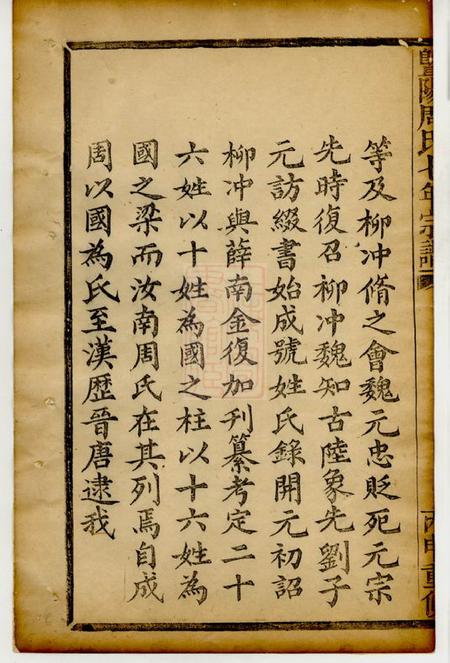 暨陽周氏七年宗譜
等及柳冲脩之會魏元忠貶死元宗
先時復召柳冲魏知古陸象先劉子
元訪綴書始成號姓氏錄開元初詔
柳冲與薛南金復加刋纂考定二十
六姓以十姓為國之柱以十六姓為
國之梁而汝南周氏在其列焉自成
周以國為氏至漢歷晉唐逮我
丙申重修